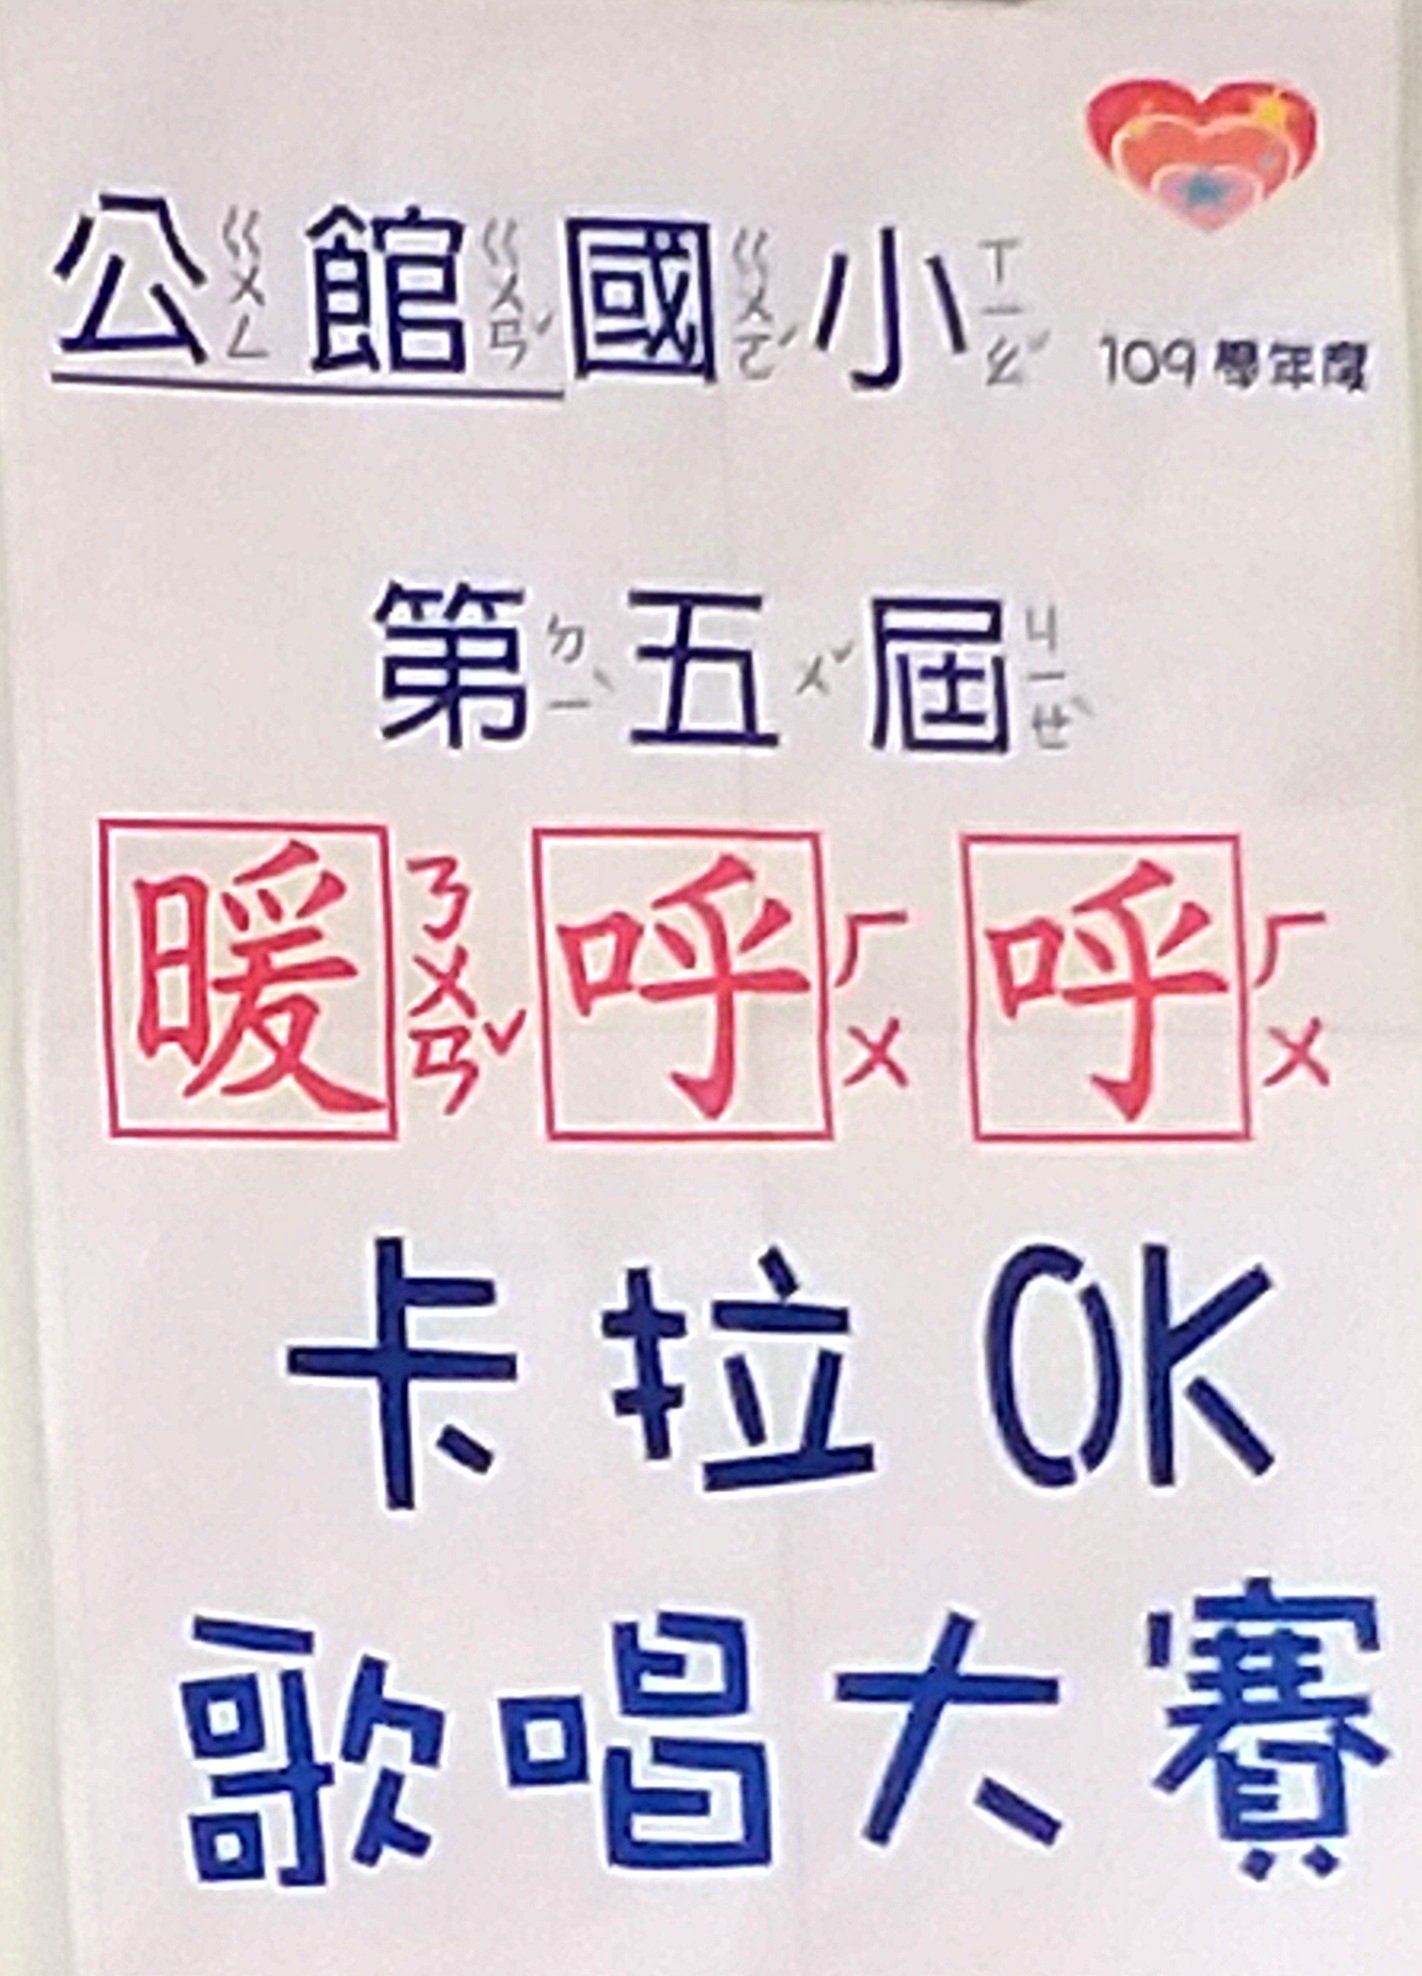 公ㄍㄨㄥ館ㄍㄨㄢˇ國ㄍㄨㄛˊ小ㄒㄧㄠˇ 109 學年度
第ㄉㄧˋ五ㄨˇ屆ㄐㄧㄝˋ
暖ㄋㄨㄢˇ呼ㄏㄨ呼ㄏㄨ
卡拉OK
歌唱大賽